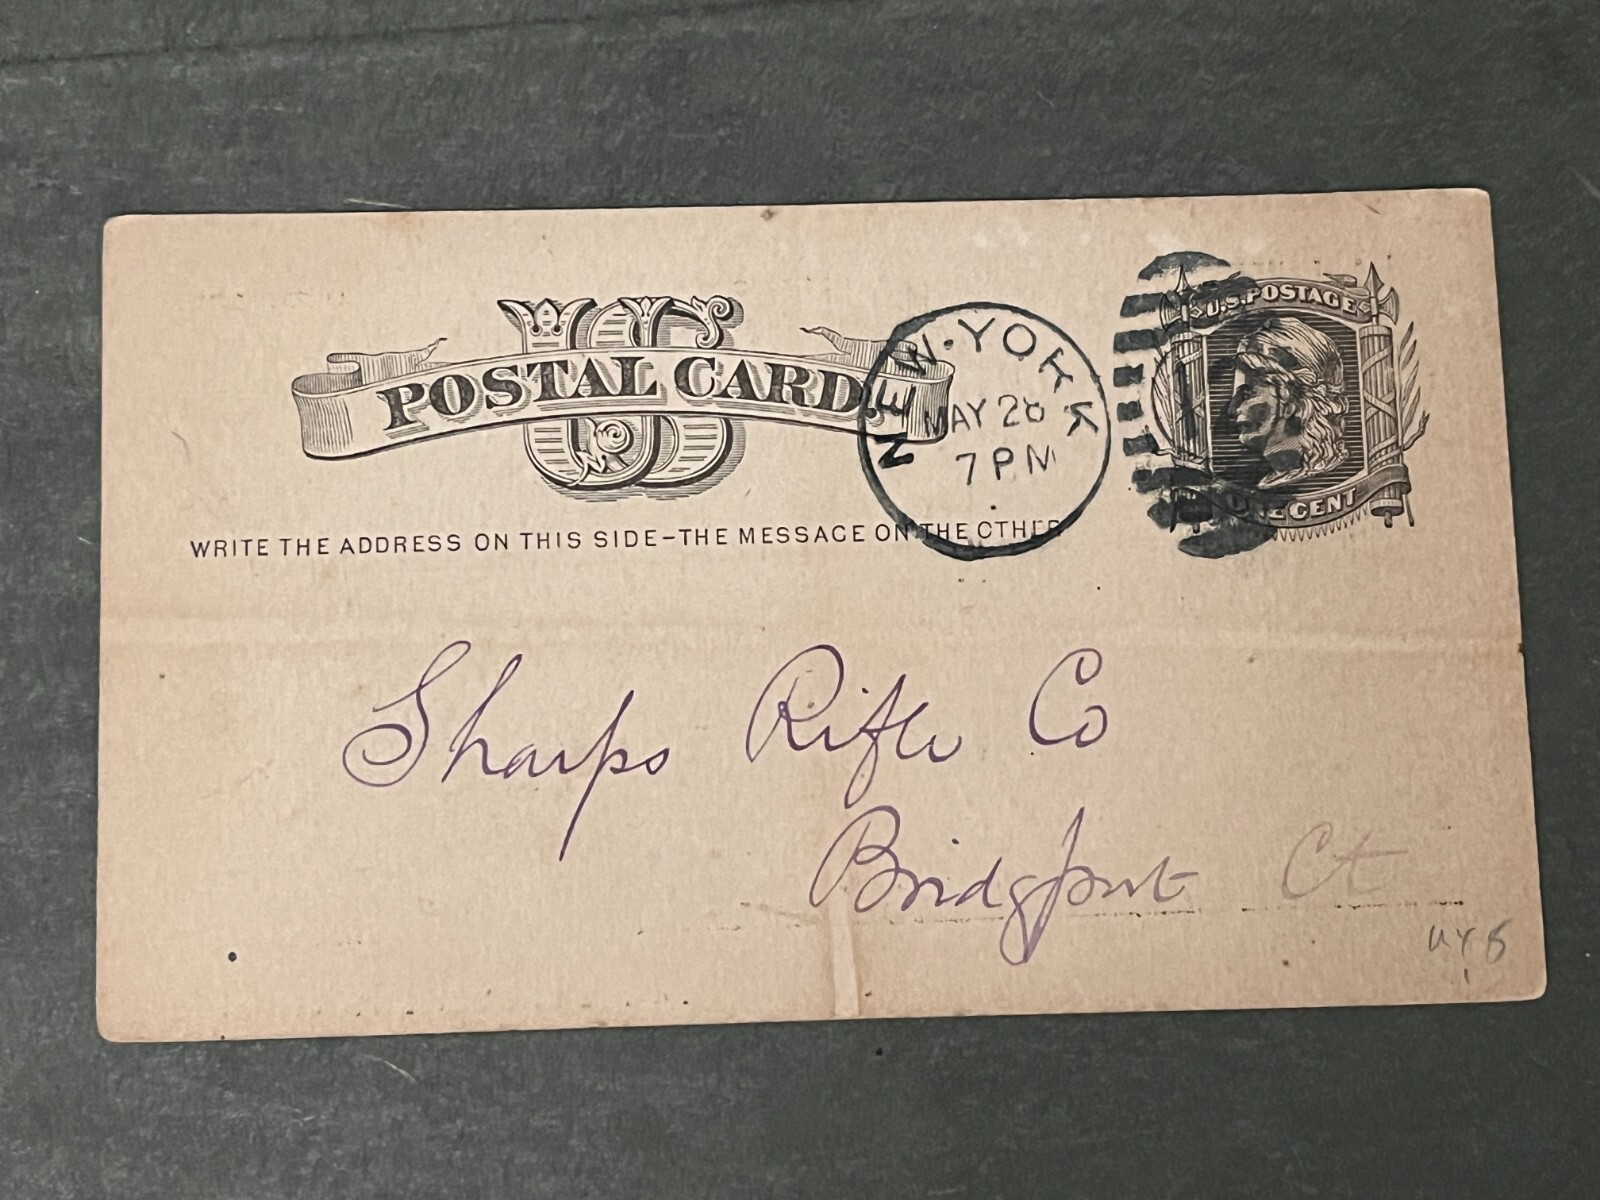 US
POSTAL CARD.
WRITE THE ADDRESS ON THIS SIDE-THE MESSAGE ON THE OTHER
NEW-YORK
MAY 28
7 PM
U.S. POSTAGE
ONE CENT
Sharps Rifle Co
Bridgport Ct